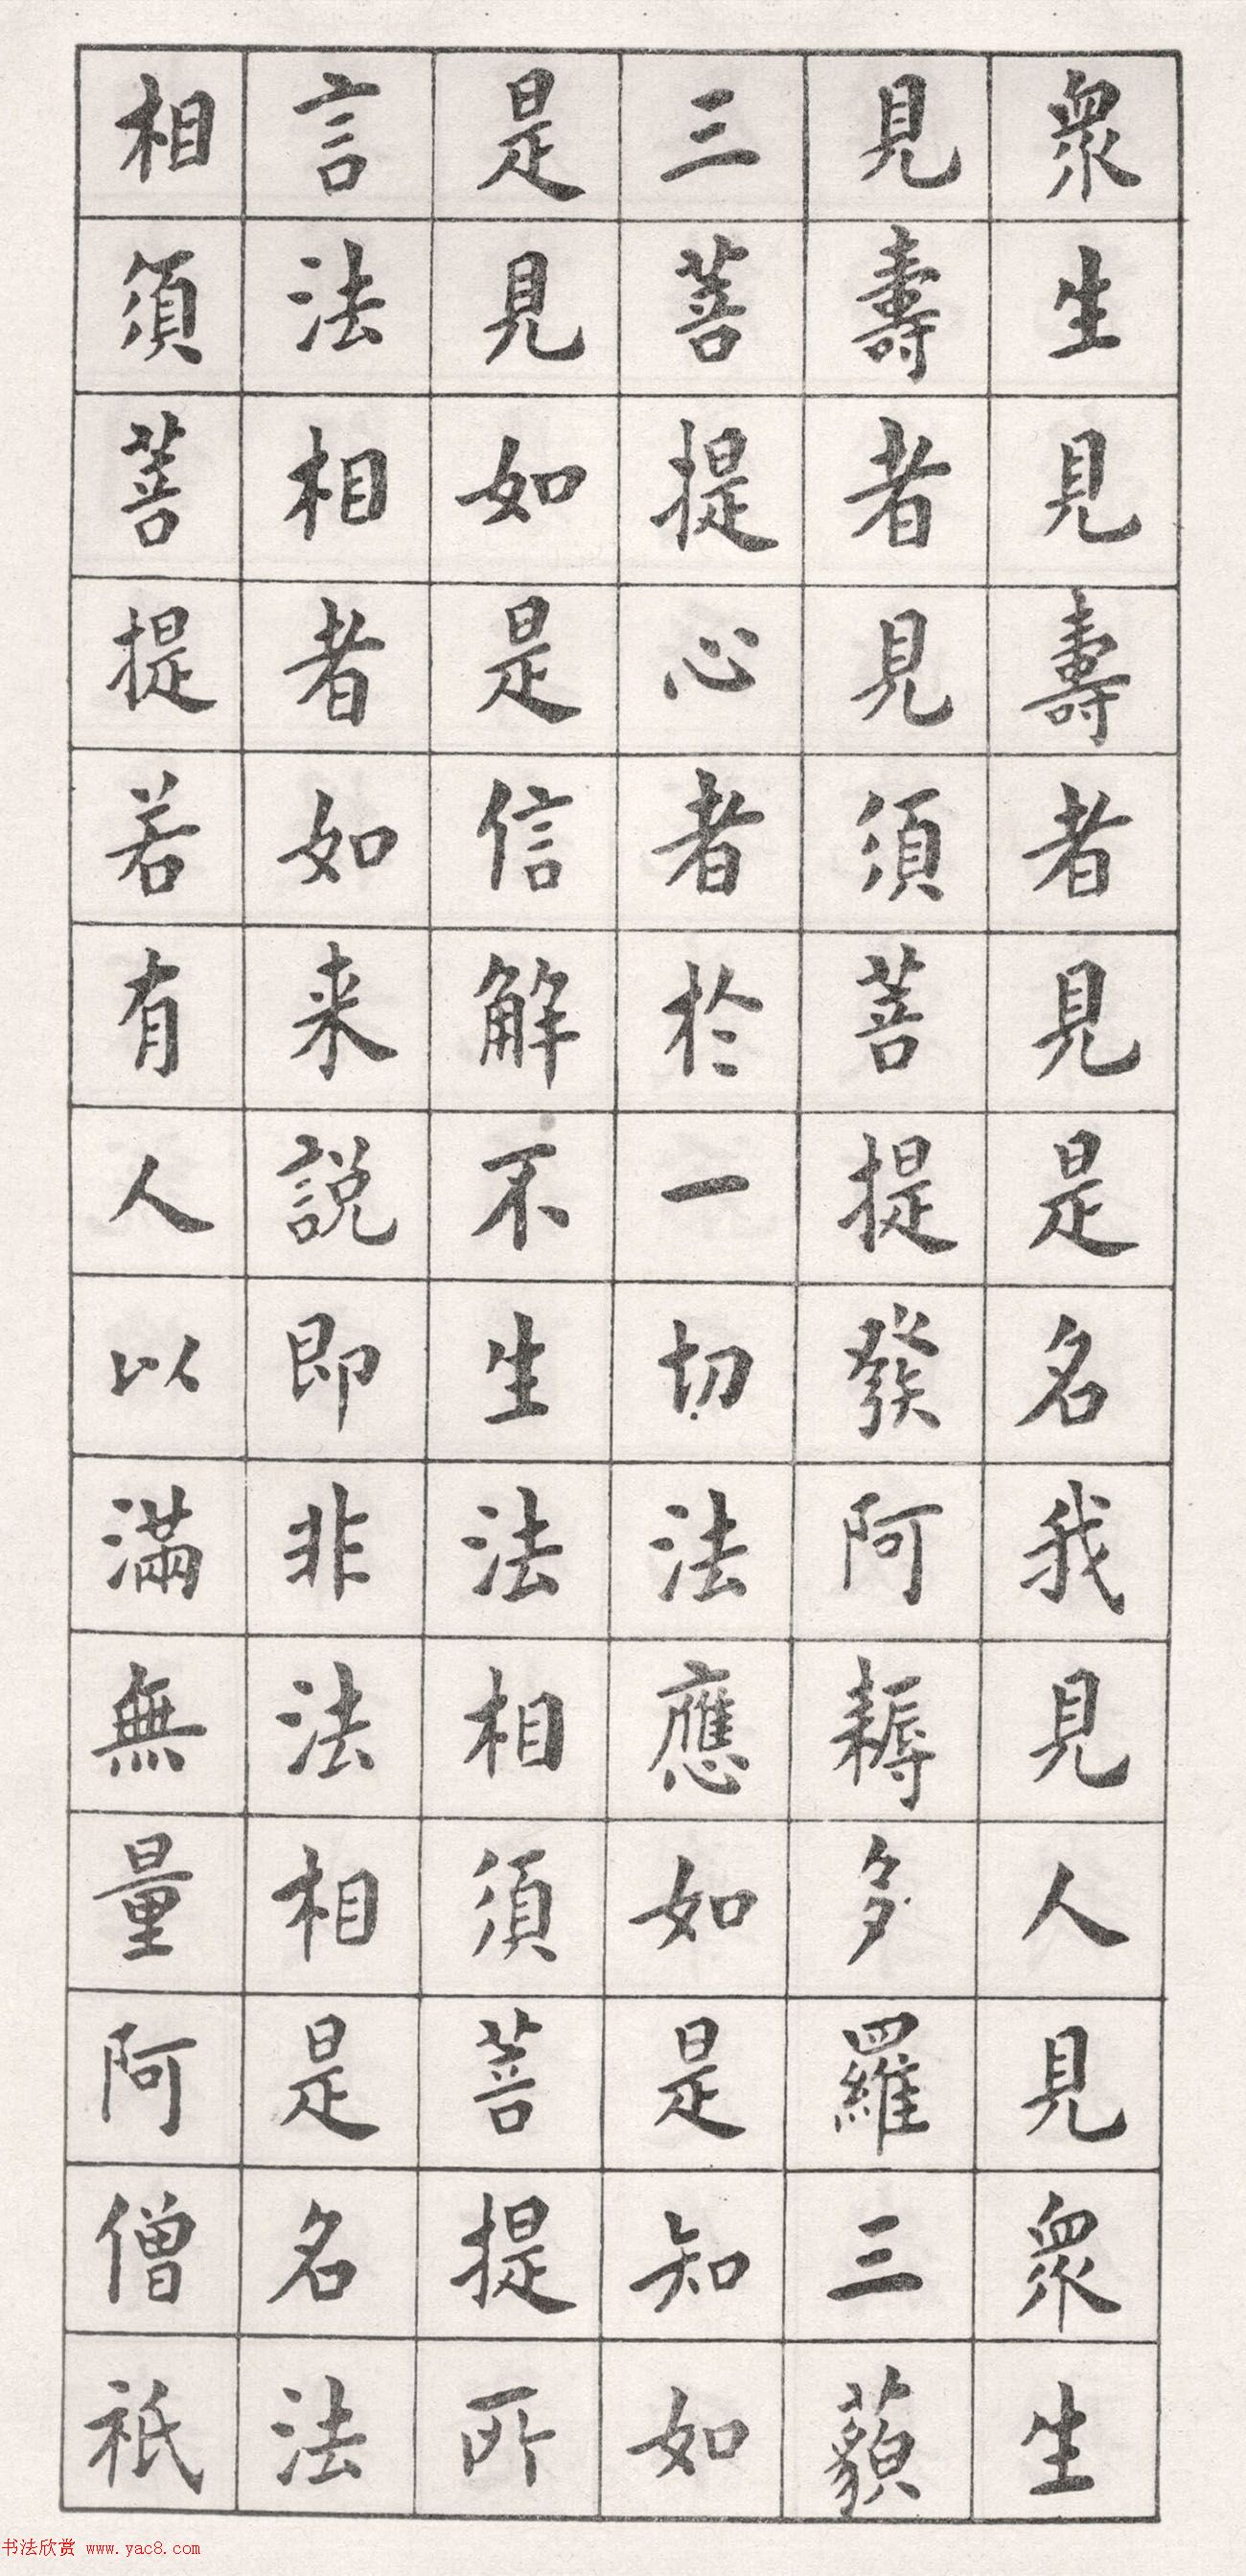 衆生見壽者見是名我見人見衆生
見壽者見須菩提發阿耨多羅三藐
三菩提心者於一切法應如是知如
是見如是信解不生法相須菩提所
言法相者如来説即非法相是名法
相須菩提若有人以滿無量阿僧祇
书法欣赏 www.yac8.com